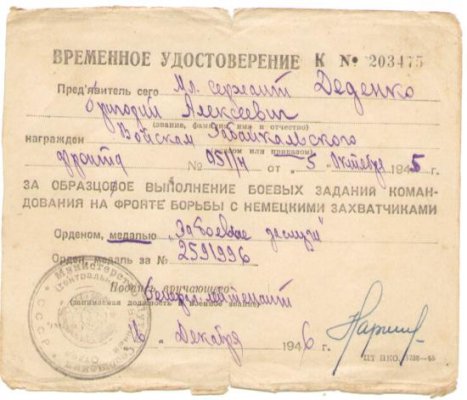 ВРЕМЕННОЕ УДОСТОВЕРЕНИЕ К № 203475
Пред'явитель сего Мл. сержант Деденко
Григорий Алексеевич
(звание, фамилия, имя и отчество)
награжден Войскам Забайкальского
(указом или приказом)
фронта № 051/н от „5 Октября 1945
ЗА ОБРАЗЦОВОЕ ВЫПОЛНЕНИЕ БОЕВЫХ ЗАДАНИЙ КОМАН-
ДОВАНИЯ НА ФРОНТЕ БОРЬБЫ С НЕМЕЦКИМИ ЗАХВАТЧИКАМИ
Орденом, медалью „За боевые заслуги"
Орден, медаль за № 2591996
Подпись вручающего
Генерал-лейтенант
(занимаемая должность и военное звание)
16 Декабря 1946
Министерство
СССР